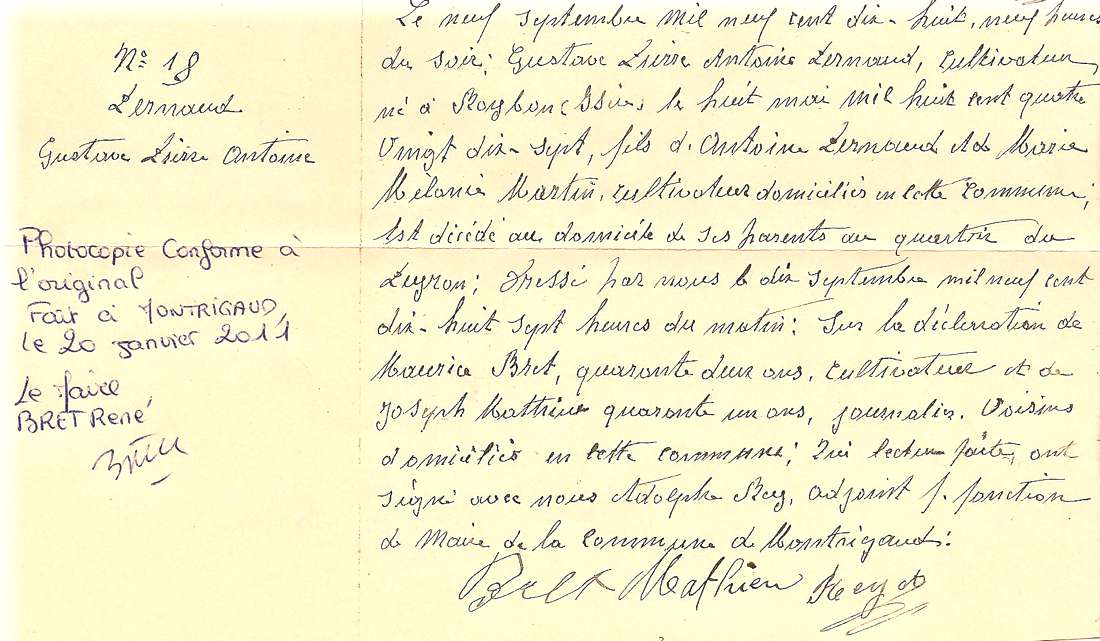 N° 18
Pernaud
Gustave Pierre Antoine
Photocopie Conforme à
l'original
Fait à MONTRIGAUD,
le 20 janvier 2011
Le Maire,
BRET René
Le neuf septembre mil neuf cent dix-huit, neuf heures
du soir; Gustave Pierre Antoine Pernaud, cultivateur,
né à Roybon (Isère) le huit mai mil huit cent quatre
vingt dix-sept, fils d'Antoine Pernaud et de Marie
Mélanie Martin, cultivateurs domiciliés en cette commune;
Est décédé au domicile de ses parents au quartier du
Peyron; Dressé par nous le dix septembre mil neuf cent
dix-huit sept heures du matin; Sur la déclaration de
Maurice Bret, quarante deux ans, cultivateur et de
Joseph Mathieu quarante un ans, journalier. Voisins
domiciliés en cette commune; Qui lecture faite, ont
signé avec nous Adolphe Rey, adjoint f. fonction
de Maire de la commune de Montrigaud:
Bret Mathieu Rey